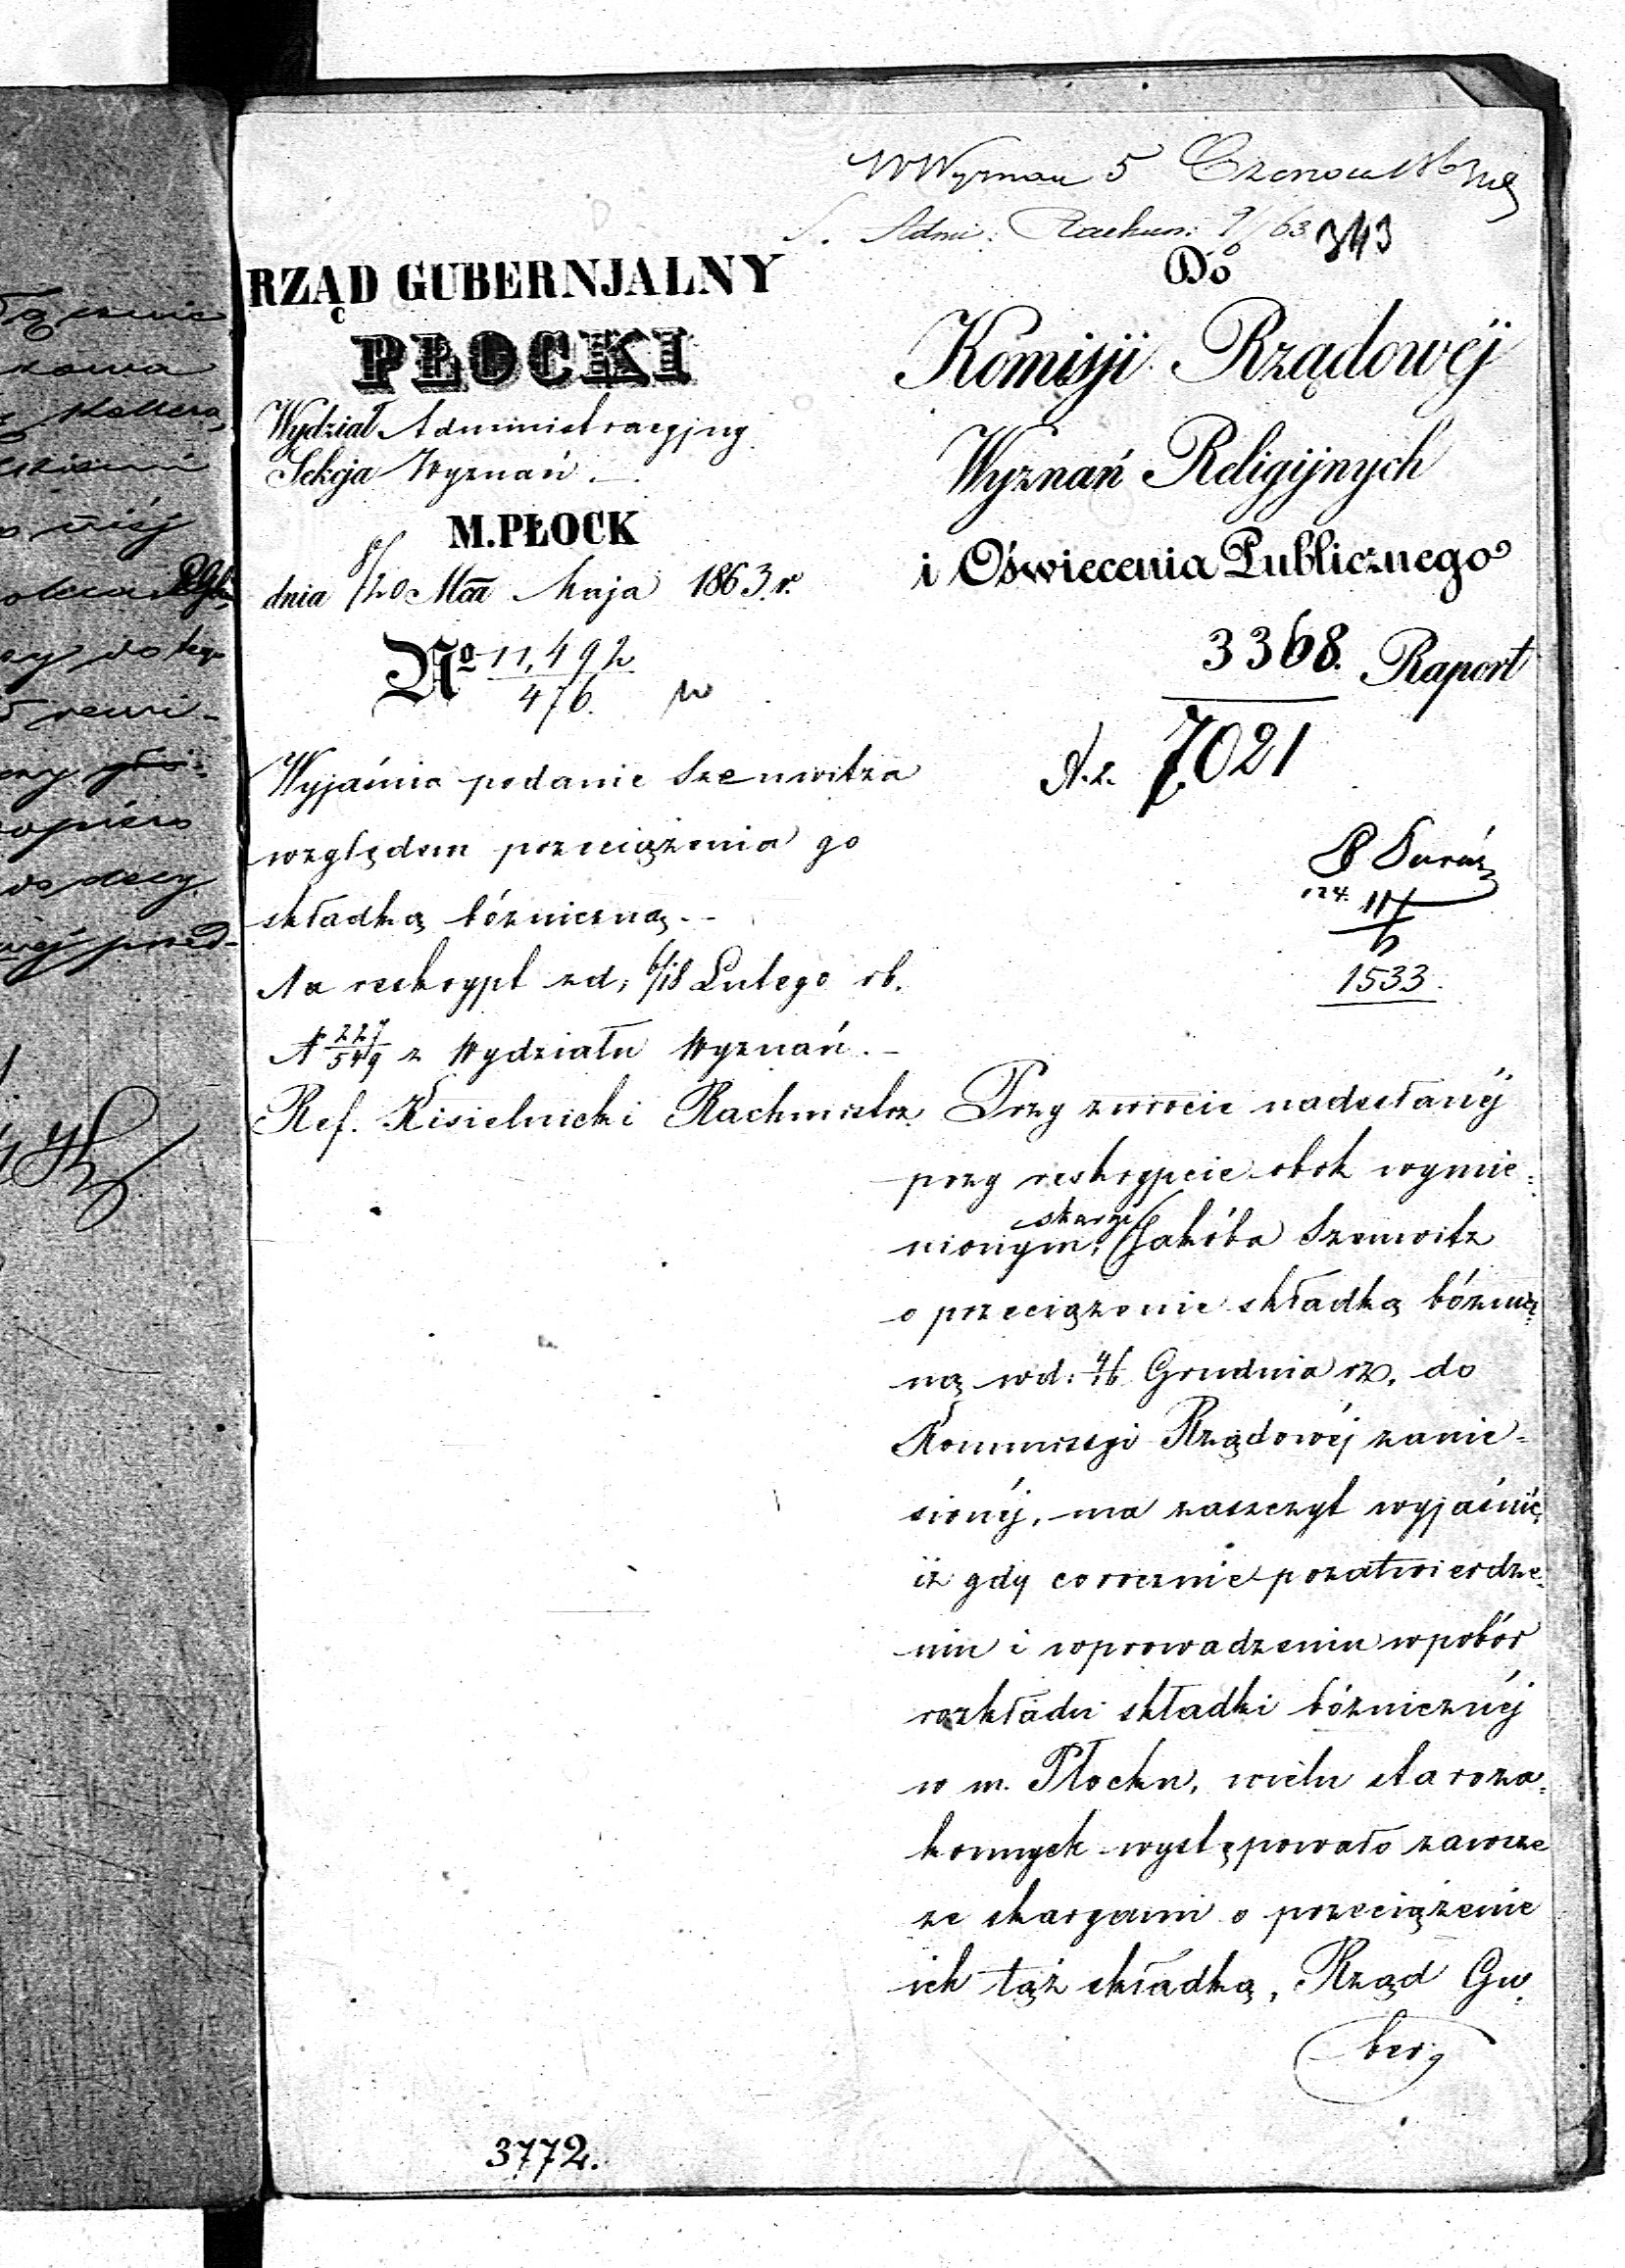 W Wyznań 5 Czerwca
S. Adm: Rachun: 9/6 63 343
RZĄD GUBERNJALNY
PŁOCKI
Wydział Administracyjny
Sekcja Wyznań.
M. PŁOCK
dnia 8/20 Mca Maja 1863 r.
No 11,492/476. w
Do
Komisji Rządowéj
Wyznań Religijnych
i Oświecenia Publicznego
3368. Raport
7021
1533.
Wyjaśnia podanie Szenwitza
względem przeciążenia go
składką bóżniczną.-
Na reskrypt z d. 6/18 Lutego rb.
N 227/549 z Wydziału Wyznań.-
Ref. Kisielnicki Rachmistrz
Przy zwrocie nadesłanéj
przy reskrypcie obok wymie=
nionym, skargi Jakóba Szenwitz
o przeciążenie składką bóżni=
ną w d: 4/16 Grudnia rz. do
Kommissyi Rządowéj zanie=
sionéj, ma zaszczyt wyjaśnić,
iż gdy corocznie po zatwierdze=
niu i wprowadzeniu w pobór
rozkładu składki bóżnicznéj
w m. Płocku, wielu staroza=
konnych występowało zawsze
ze skargami o przeciążenie
ich tąż składką, Rząd Gu=
ber
3772.